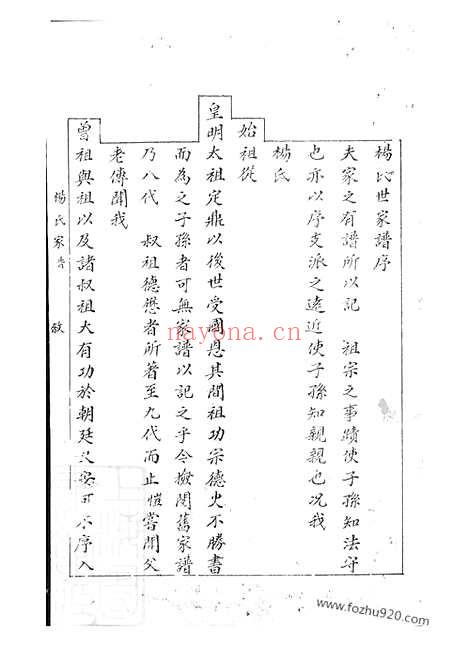 楊氏世家譜序
夫家之有譜所以記 祖宗之事蹟使子孫知法守
也亦以序支派之遠近使子孫知親親也况我
楊氏
始祖從
皇明太祖定鼎以後世受國恩其間祖功宗德火不勝書
而為之子孫者可無家譜以記之乎今撿閱舊家譜
乃八代 叔祖德懋者所著至九代而止愷嘗聞父
老傳聞我
曾祖與祖以及諸叔祖大有功於朝廷又安可不序入
楊氏家譜 敘
nayona.cn
www.fozhu920.com